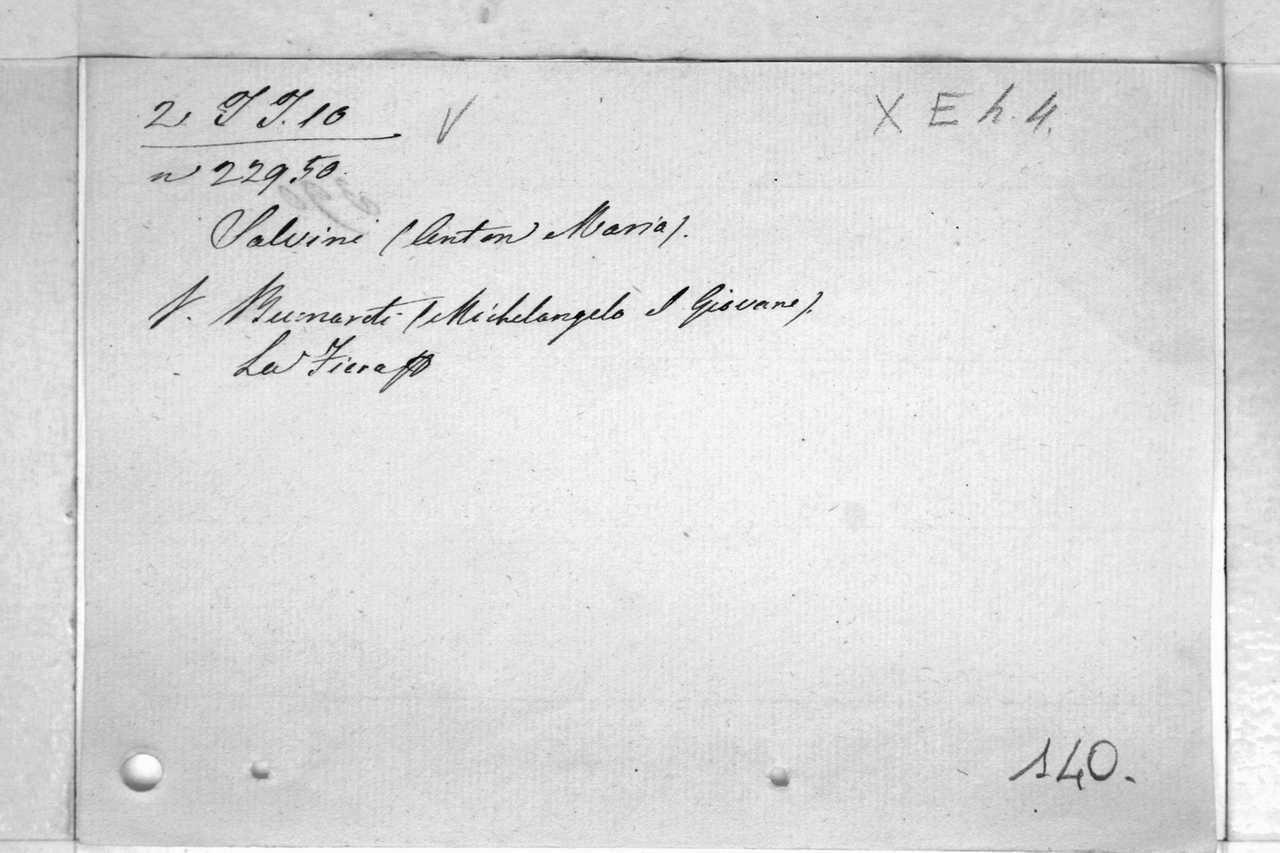 2. J J. 10 V X E h. 4.
n 22950.
Salvini (Anton Maria).
V. Buonaroti (Michelangelo il Giovane).
La Fiera
140.